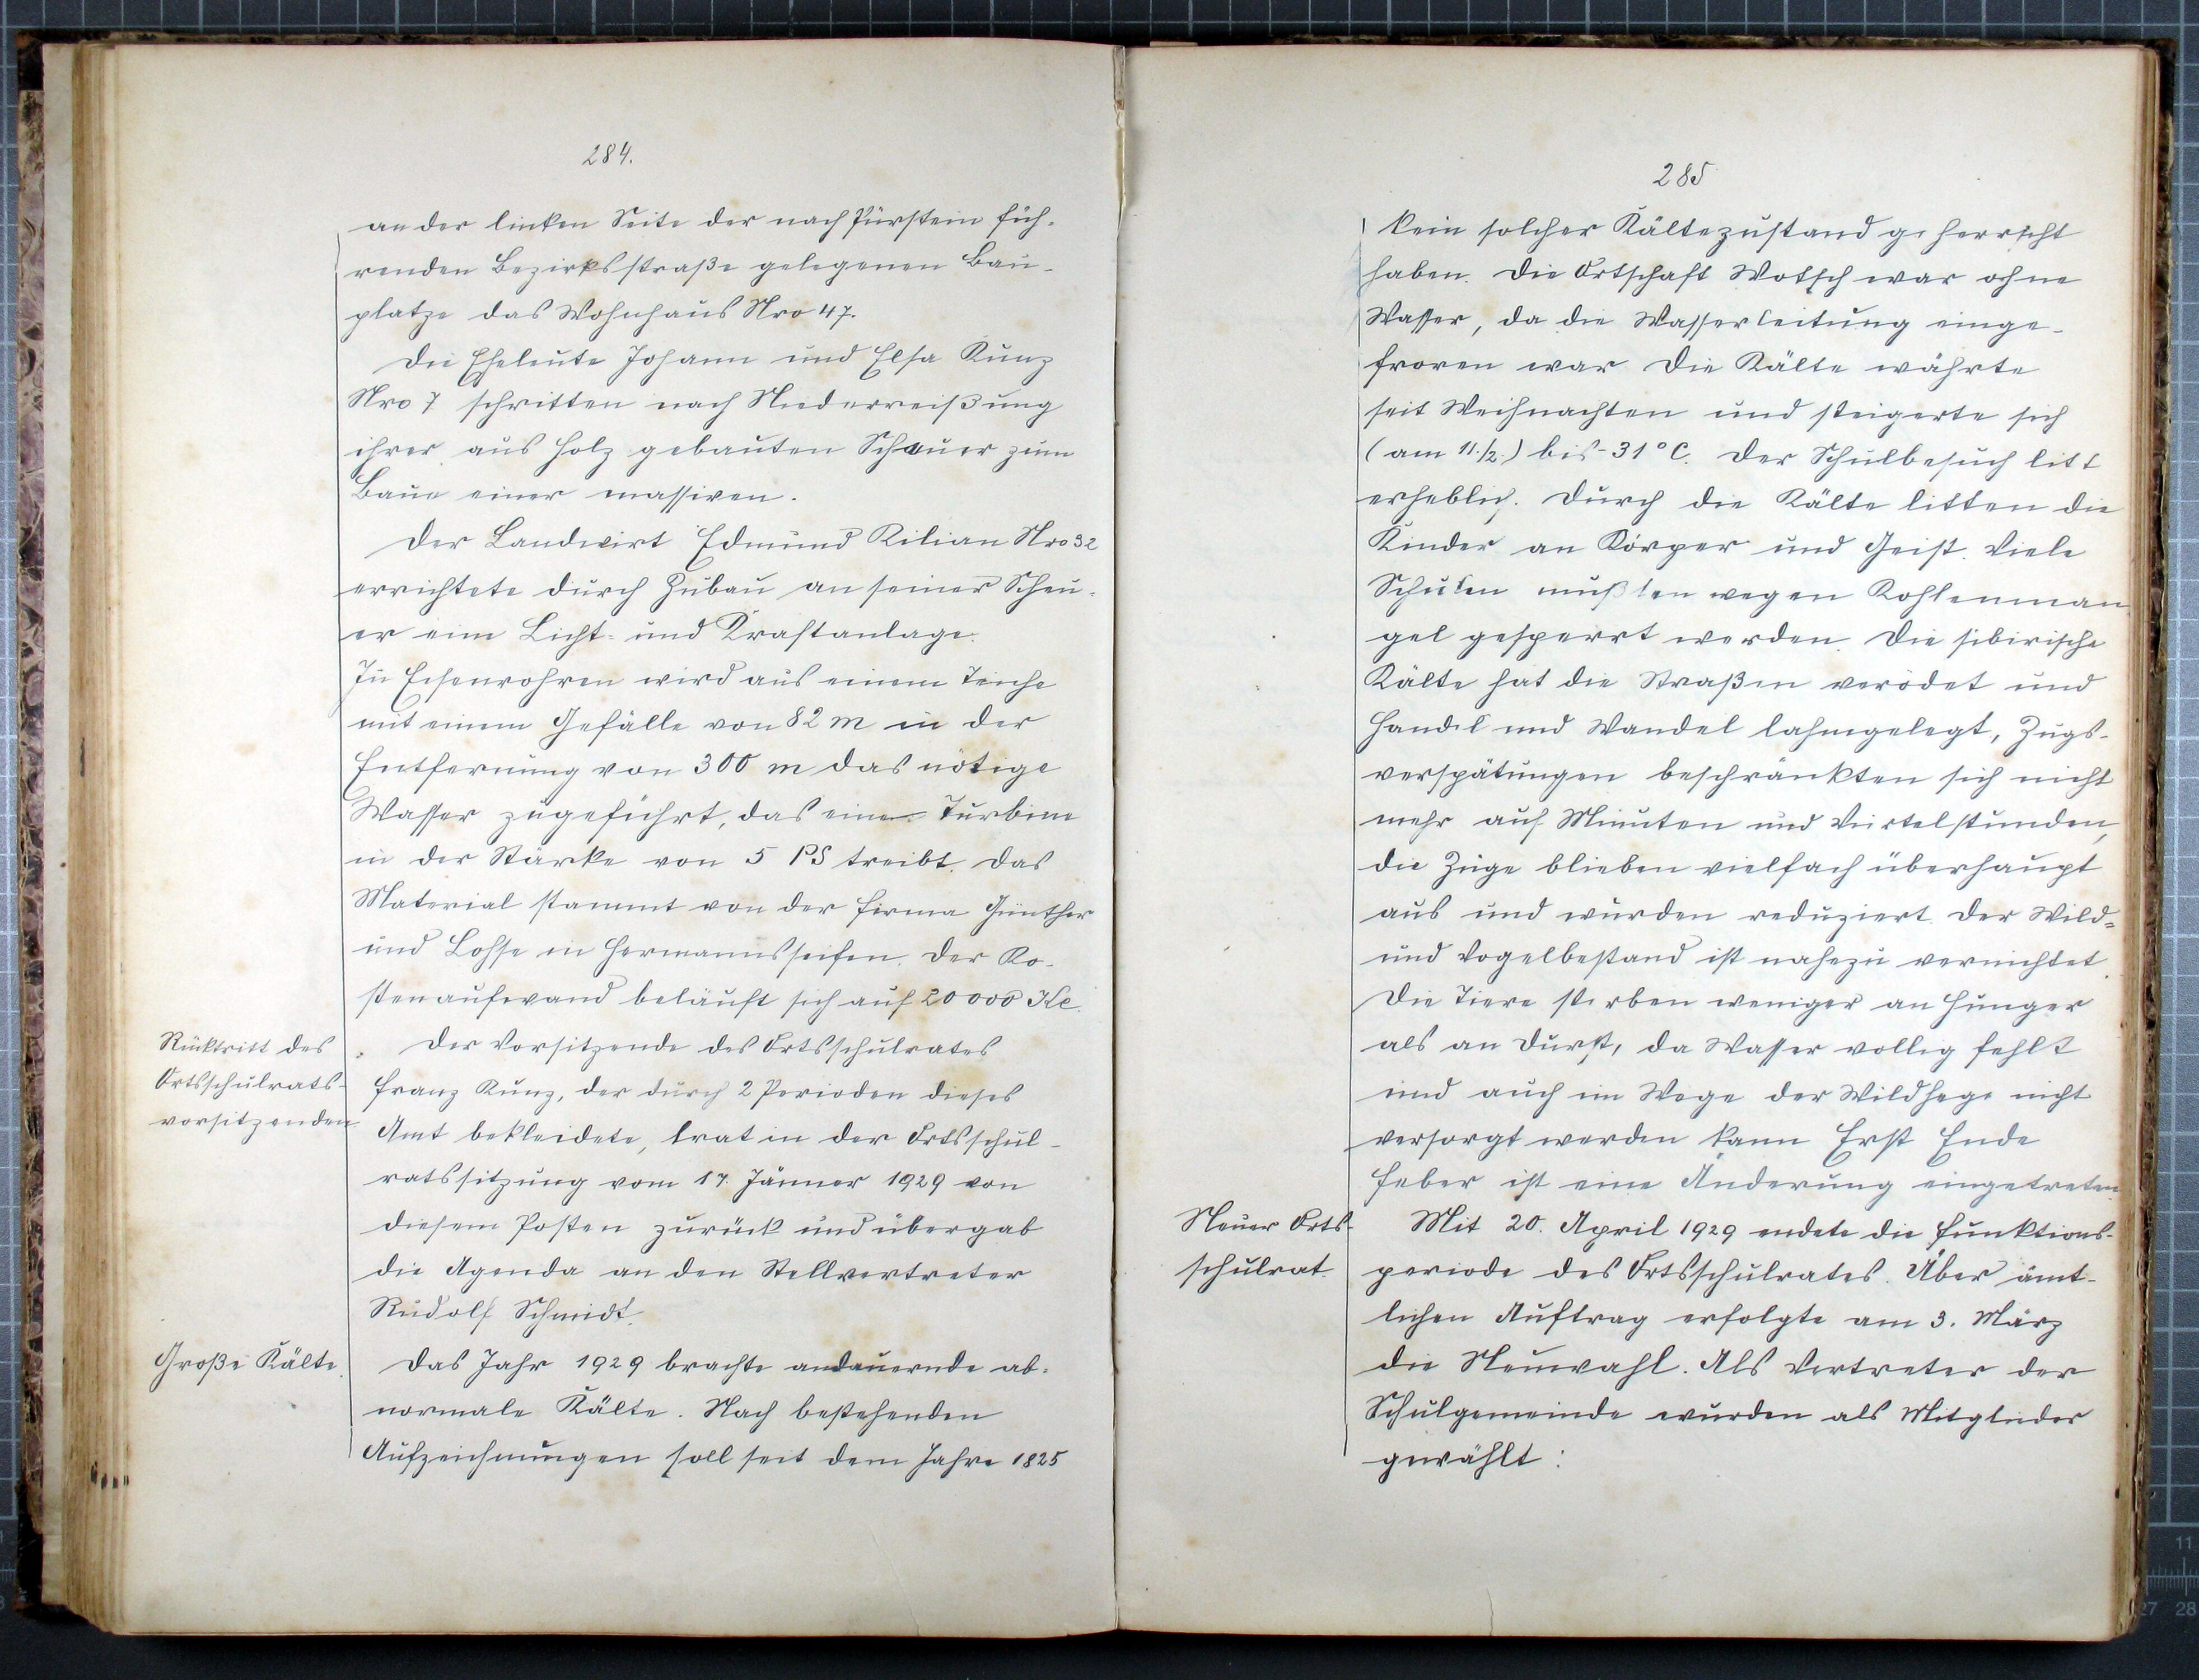 284.
an der linken Seite der nach Pürstein füh-
renden Bezirksstraße gelegenen Bau-
platze das Wohnhaus Nro 47.
Die Eheleute Johann und Elsa Kunz
Nro 7 schritten nach Niederreißung
ihrer aus Holz gebauten Schauer zum
Baue einer massiven.
Der Landwirt Edmund Kilian Nro 32
errichtete durch Zubau an seiner Scheu-
er eine Licht- und Kraftanlage.
In Eisenrohren wird aus einem Teiche
mit einem Gefälle von 82 m in der
Entfernung von 300 m das nötige
Wasser zugeführt, das eine Turbine
in der Stärke von 5 PS treibt. Das
Material stammt von der Firma Günther
und Lohse in Hermannsseifen. Der Ko-
stenaufwand beläuft sich auf 20000 Kc.
Rücktritt des
Ortsschulrats-
vorsitzenden
Der Vorsitzende des Ortsschulrates
Franz Kunz, der durch 2 Perioden dieses
Amt bekleidete, trat in der Ortsschul-
ratssitzung vom 17. Jänner 1929 von
diesem Posten zurück und übergab
die Agenda an den Stellvertreter
Rudolf Schmidt.
Große Kälte.
Das Jahr 1929 brachte andauernde ab-
normale Kälte. Nach bestehenden
Aufzeichnungen soll seit dem Jahre 1825
285
kein solcher Kältezustand geherrscht
haben. Die Ortschaft Wotsch war ohne
Wasser, da die Wasserleitung einge-
froren war. Die Kälte währte
seit Weihnachten und steigerte sich
(am 11./2.) bis -31°C. Der Schulbesuch litt
erheblich. Durch die Kälte litten die
Kinder an Körper und Geist. Viele
Schulen mußten wegen Kohlenman
gel gesperrt werden. Die sibirische
Kälte hat die Straßen verödet und
Handel und Wandel lahmgelegt, Zugs-
verspätungen beschränkten sich nicht
mehr auf Minuten und Viertelstunden,
die Züge blieben vielfach überhaupt
aus und wurden reduziert. Der Wild-
und Vogelbestand ist nahezu vernichtet.
Die Tiere sterben weniger an Hunger
als an Durst, da Wasser vollig fehlt
und auch im Wege der Wildhege nicht
versorgt werden kann. Erst Ende
Feber ist eine Änderung eingetreten.
Neuer Orts-
schulrat.
Mit 20. April 1929 endete die Funktions-
periode des Ortsschulrates. Über ämt-
lichen Auftrag erfolgte am 3. März
die Neuwahl. Als Vertreter der
Schulgemeinde wurden als Mitglieder
gewählt:
11
27 28